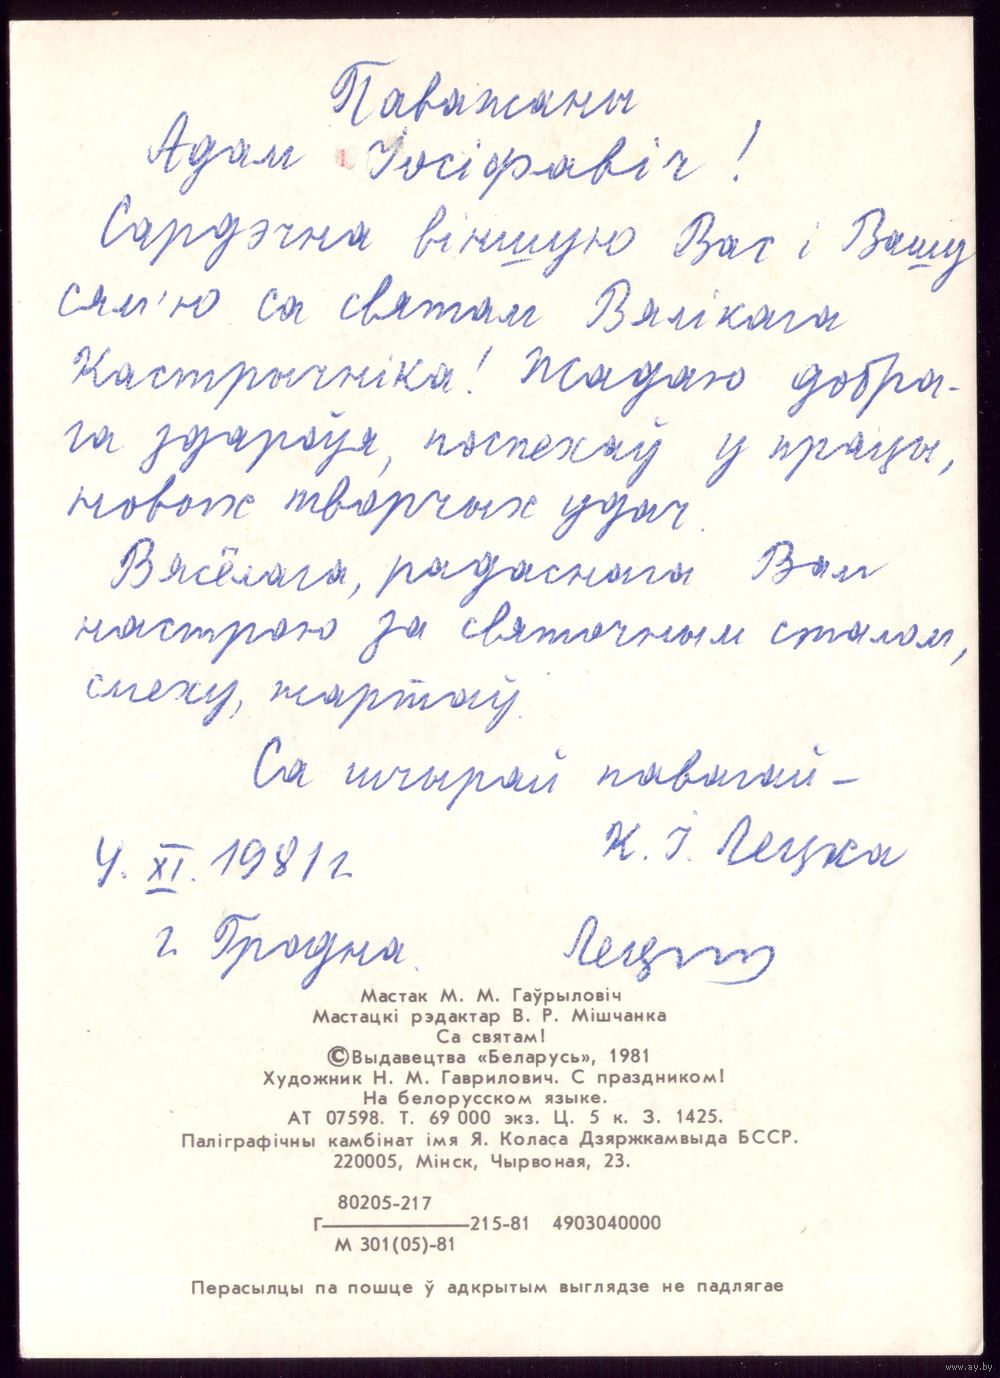 Паважаны
Адам Іосіфавіч!
Сардэчна віншую Вас і Вашу
сям'ю са святам Вялікага
Кастрычніка! Жадаю добра-
га здароўя, поспехаў у працы,
новых творчых удач.
Вясёлага, радаснага Вам
настрою за святочным сталом,
смеху, жартаў.
Са шчырай павагай –
К. І. Лецка
4. XI. 1981 г.
г. Гродна.
Мастак М. М. Гаўрыловіч
Мастацкі рэдактар В. Р. Мішчанка
Са святам!
©Выдавецтва «Беларусь», 1981
Художник Н. М. Гаврилович. С праздником!
На белорусском языке.
АТ 07598. Т. 69 000 экз. Ц. 5 к. З. 1425.
Паліграфічны камбінат імя Я. Коласа Дзяржкамвыда БССР.
220005, Мінск, Чырвоная, 23.
80205-217
Г————215-81 4903040000
М 301(05)-81
Перасылцы па пошце ў адкрытым выглядзе не падлягае
www.ay.by